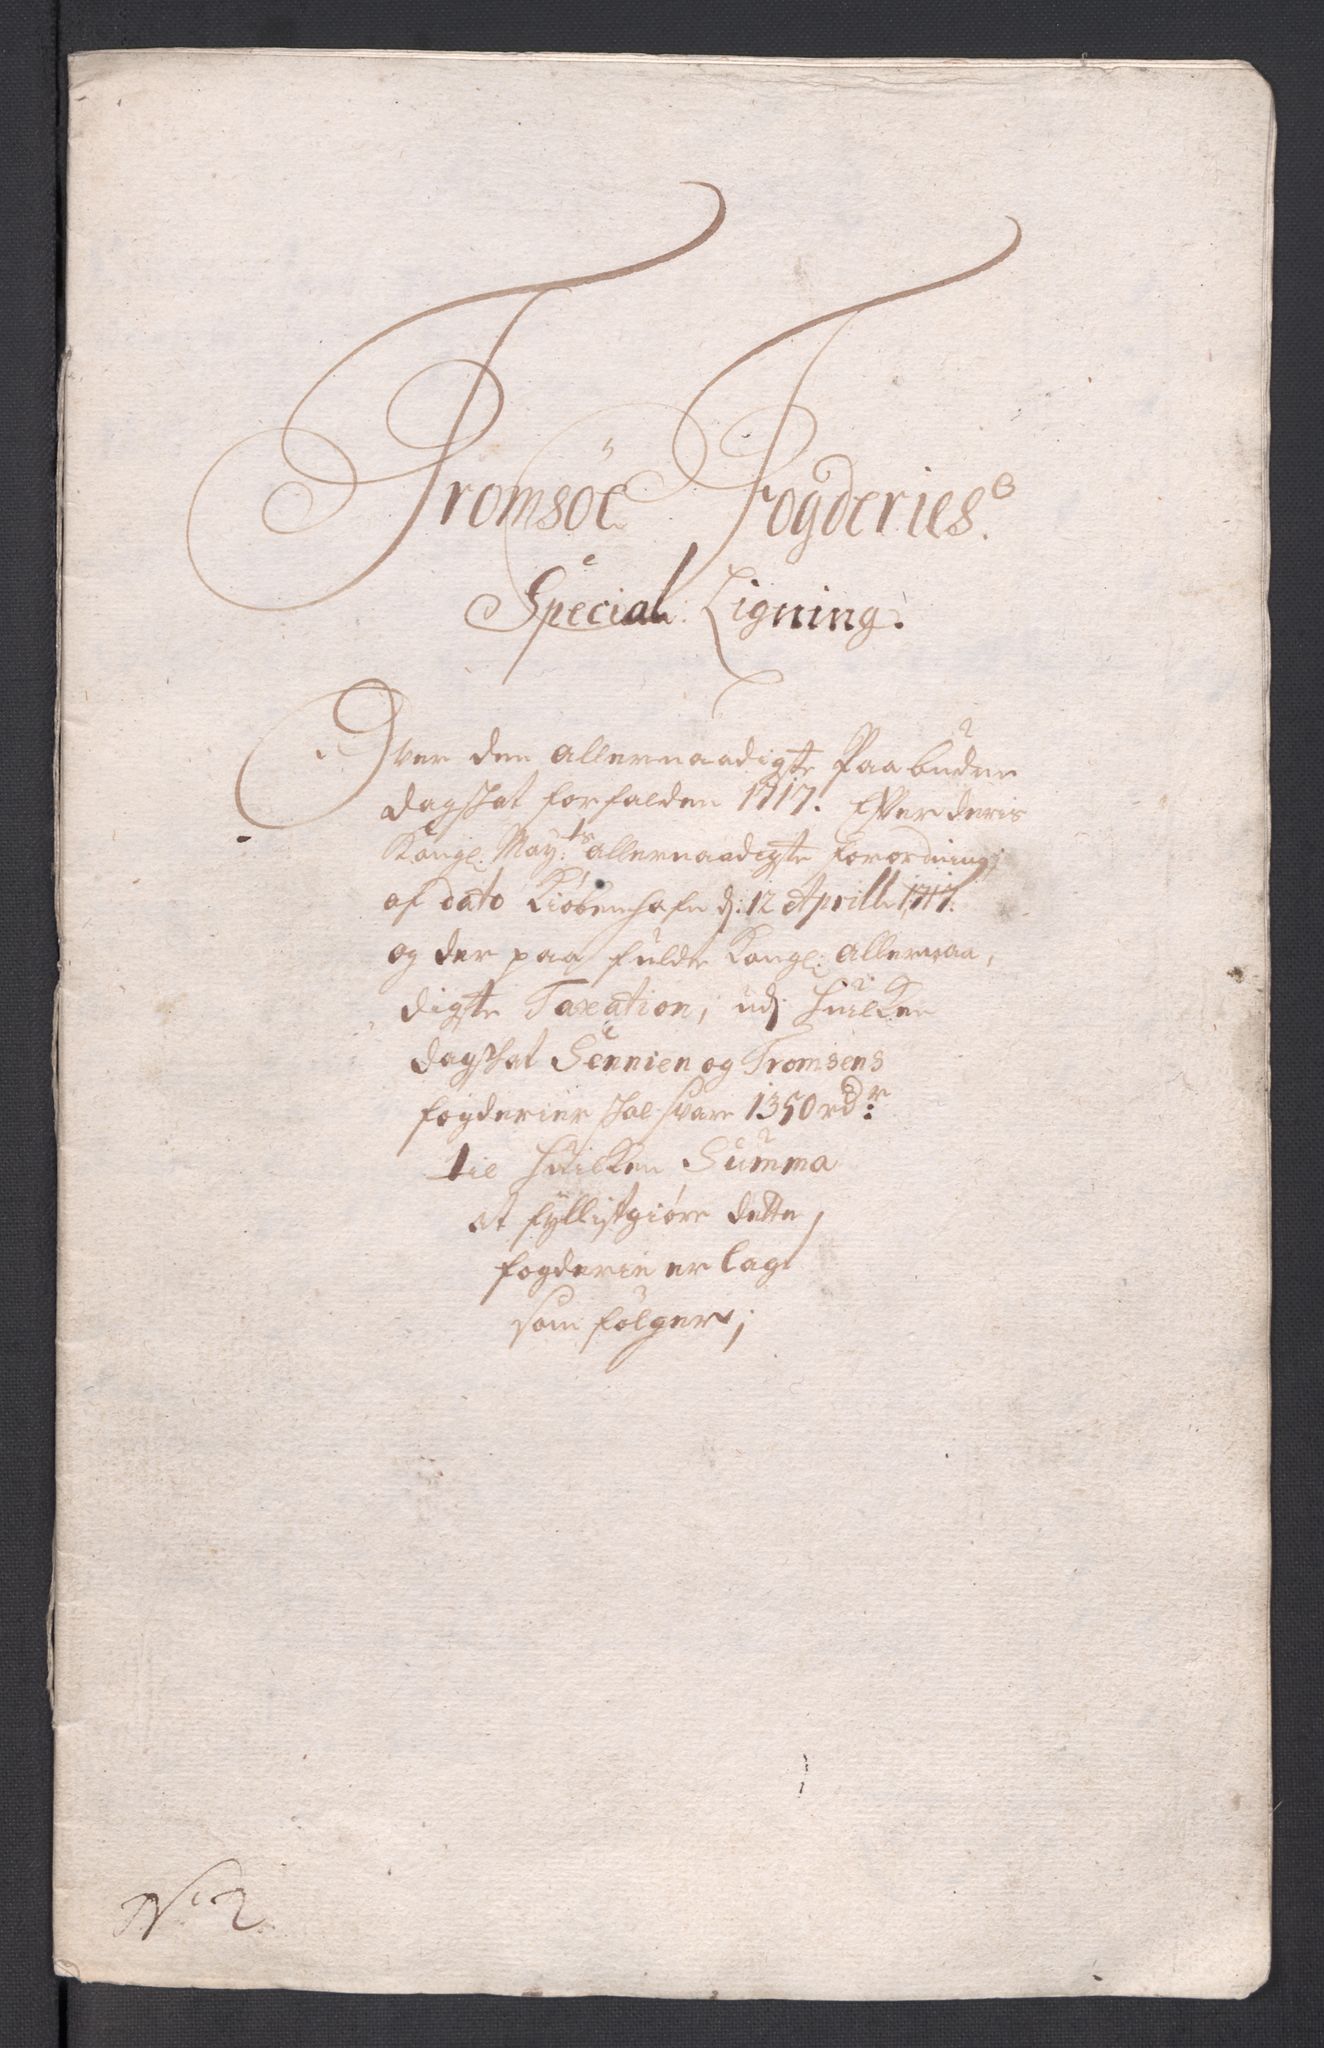 Tromsöe Fogderies
Special Ligning.
Over den allernaadigste Paabudne
dagskat forfalden 1717. Efter deris
Kongl: May:ts allernaadigste forordning
af dato Kiöbenhafn d: 12 Aprill 1717.
og der paa fulde Kongl: allernaa,
digste Taxation, udj huilken
dagskat Sennien og Tromsens
fogderier skal svare 1350 rdr:
til huilken Summa
at fyllistgiöre dette,
fogderie er lagt
som fölger,
No 2